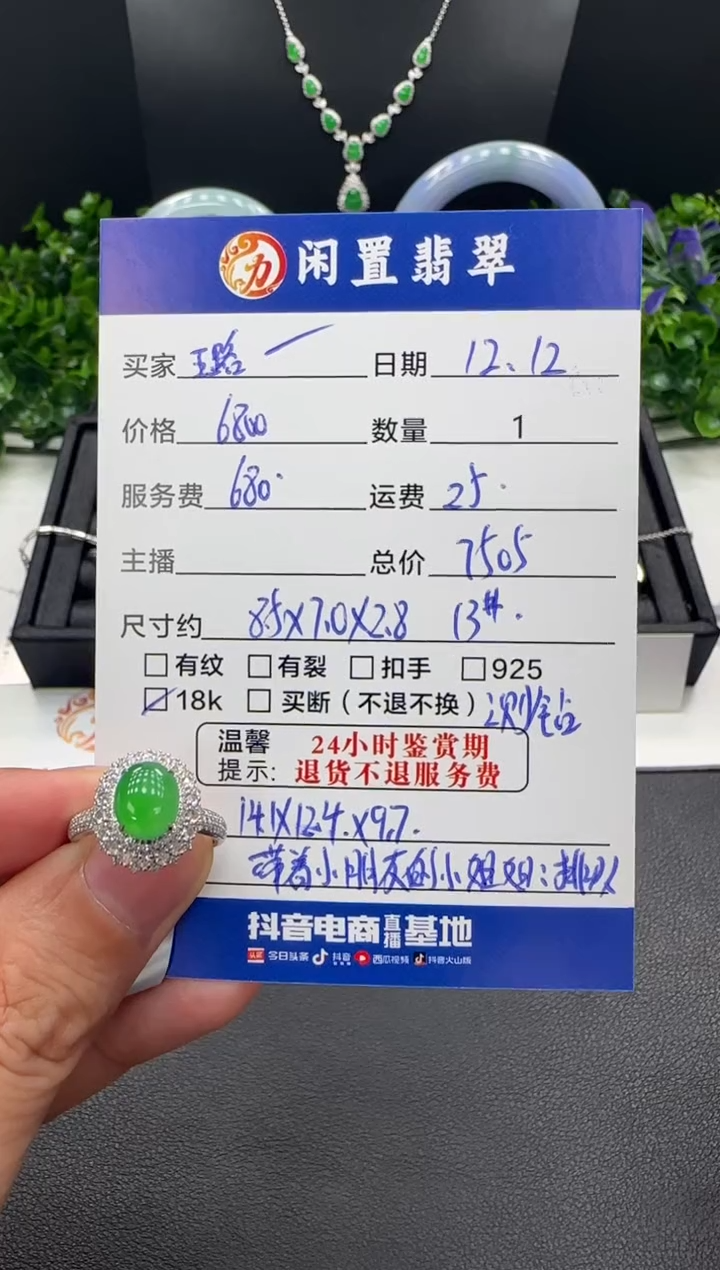 力 闲置翡翠
买家 王路 日期 12.12
价格 6800 数量 1
服务费 680. 运费 25.
主播 总价 7505
尺寸约 8.5X7.0X2.8 13#.
□有纹 □有裂 □扣手 □925
☑18k □买断(不退不换)
温馨 24小时鉴赏期
提示: 退货不退服务费
14.1X12.4.X9.7.
带着小朋友的小姐姐:
抖音电商直播基地
头条 今日头条 抖音 西瓜视频 抖音火山版